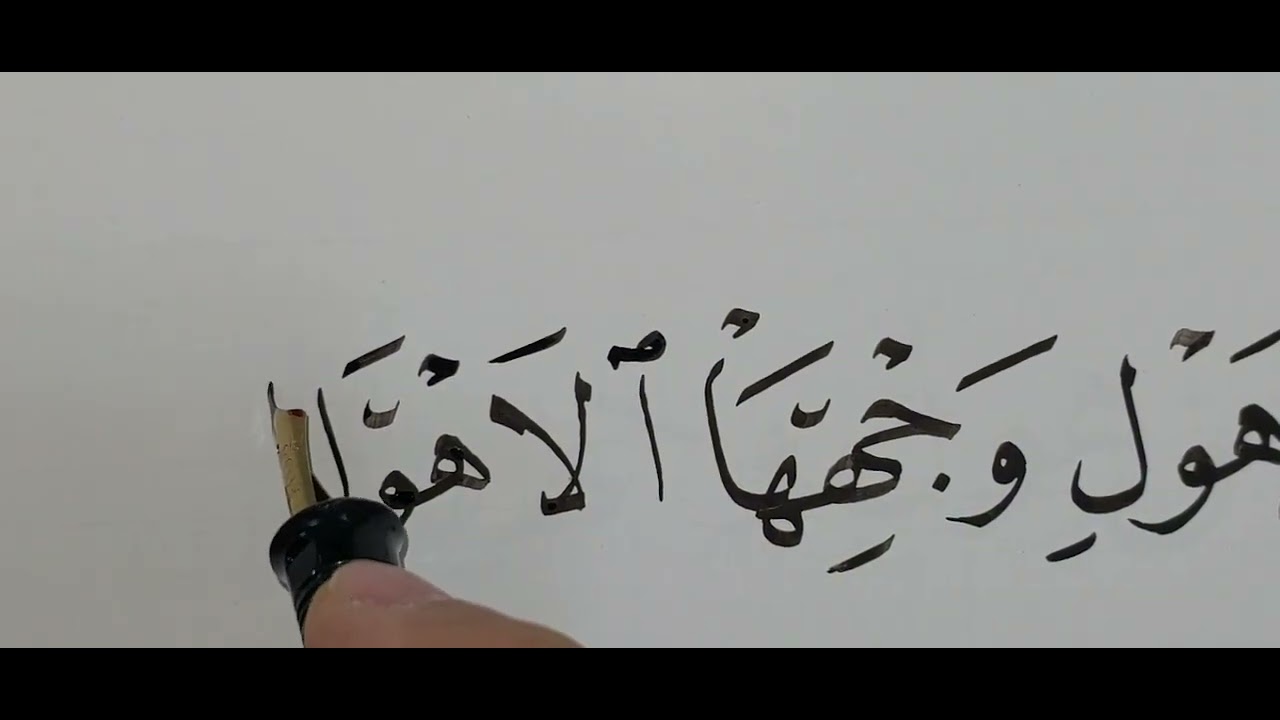 هَوْلِ وَجْهِهَا ٱلَاهْوَا